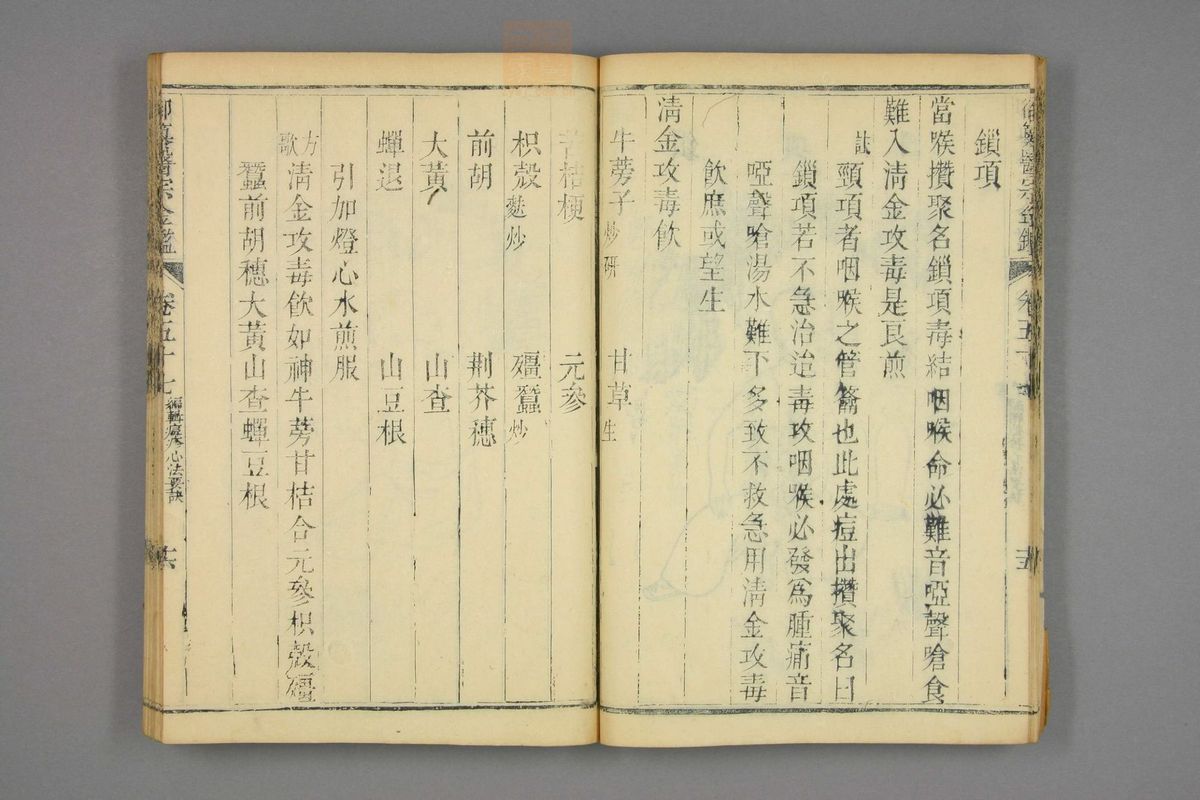 鎖項
當喉攢聚名鎖項毒結咽喉命必難音啞聲嗆食
難入清金攻毒是良煎
註
頸項者咽喉之管籥也此處痘出攢聚名曰
鎖項若不急治迨毒攻咽喉必發爲腫痛音
啞聲嗆湯水難下多致不救急用清金攻毒
飲庶或望生
清金攻毒飲
牛蒡子炒研 甘草生
苦桔梗 元參
枳殼麩炒 殭蠶炒
前胡 荆芥穗
大黃 山查
蟬退 山豆根
引加燈心水煎服
方歌
清金攻毒飲如神牛蒡甘桔合元參枳殼殭
蠶前胡穗大黃山查蟬豆根
御纂醫宗金鑑 卷五十七 編輯痘疹心法要訣